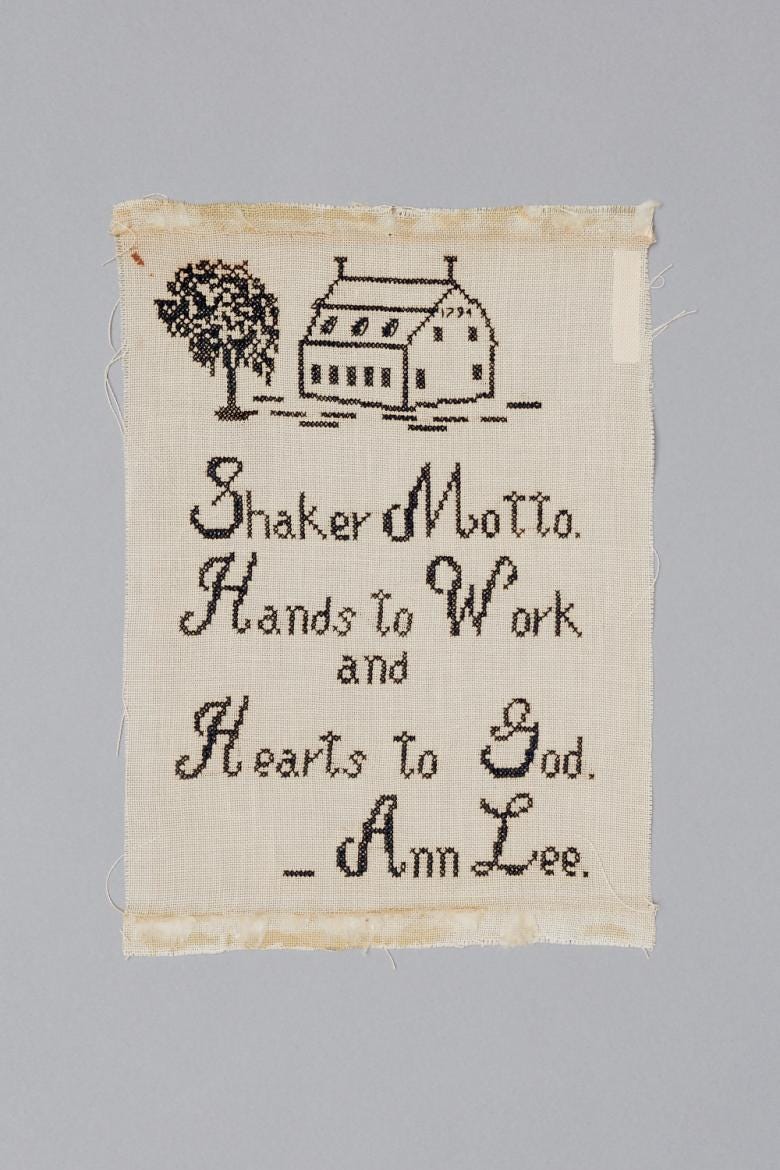 1794
Shaker Motto.
Hands to Work
and
Hearts to God.
_ Ann Lee.